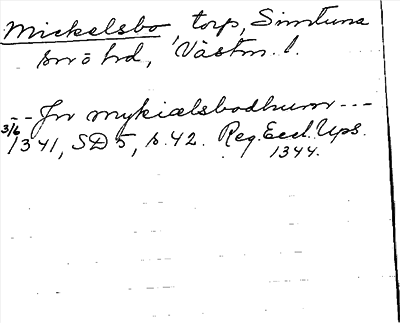 Mickelsbo, torp, Simtuna
sn o hd, Västm. l.
-- Jn mykiælsbodhum ---
3/6 1341, SD 5, s. 42. Reg. Eccl. Ups.
1344.